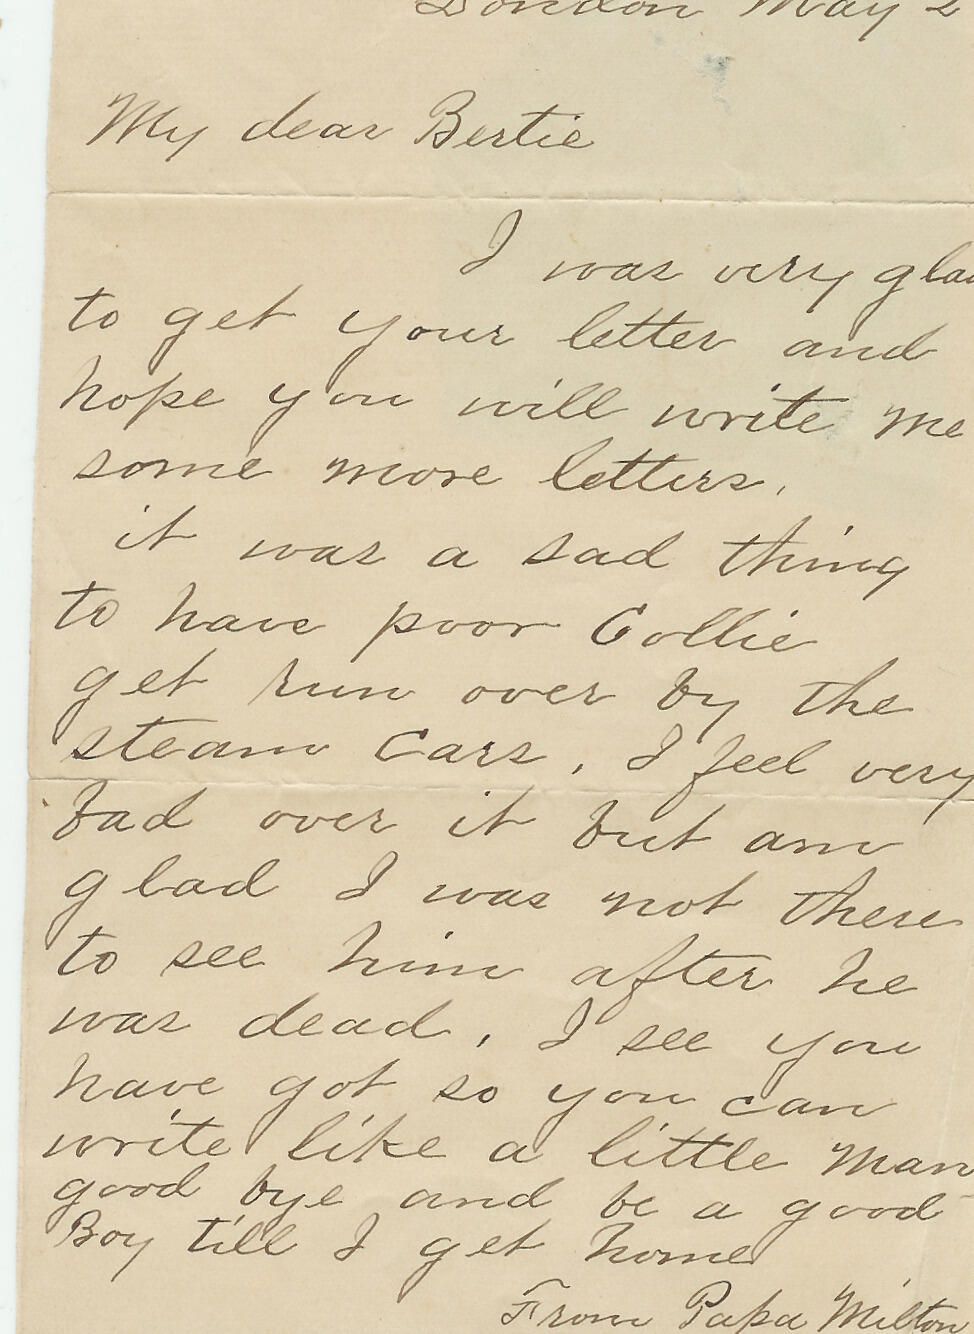 London May 2
My dear Bertie
I was very glad
to get your letter and
hope you will write me
some more letters.
it was a sad thing
to have poor Collie
get run over by the
steam Cars, I feel very
bad over it but am
glad I was not there
to see him after he
was dead, I see you
have got so you can
write like a little man
good bye and be a good
Boy till I get home
From Papa Milton